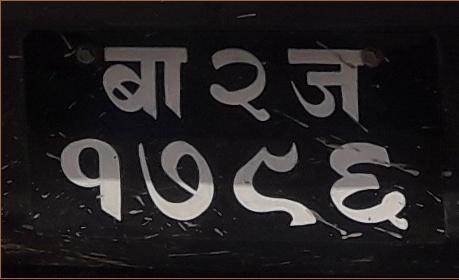 बा २ ज
१७९६